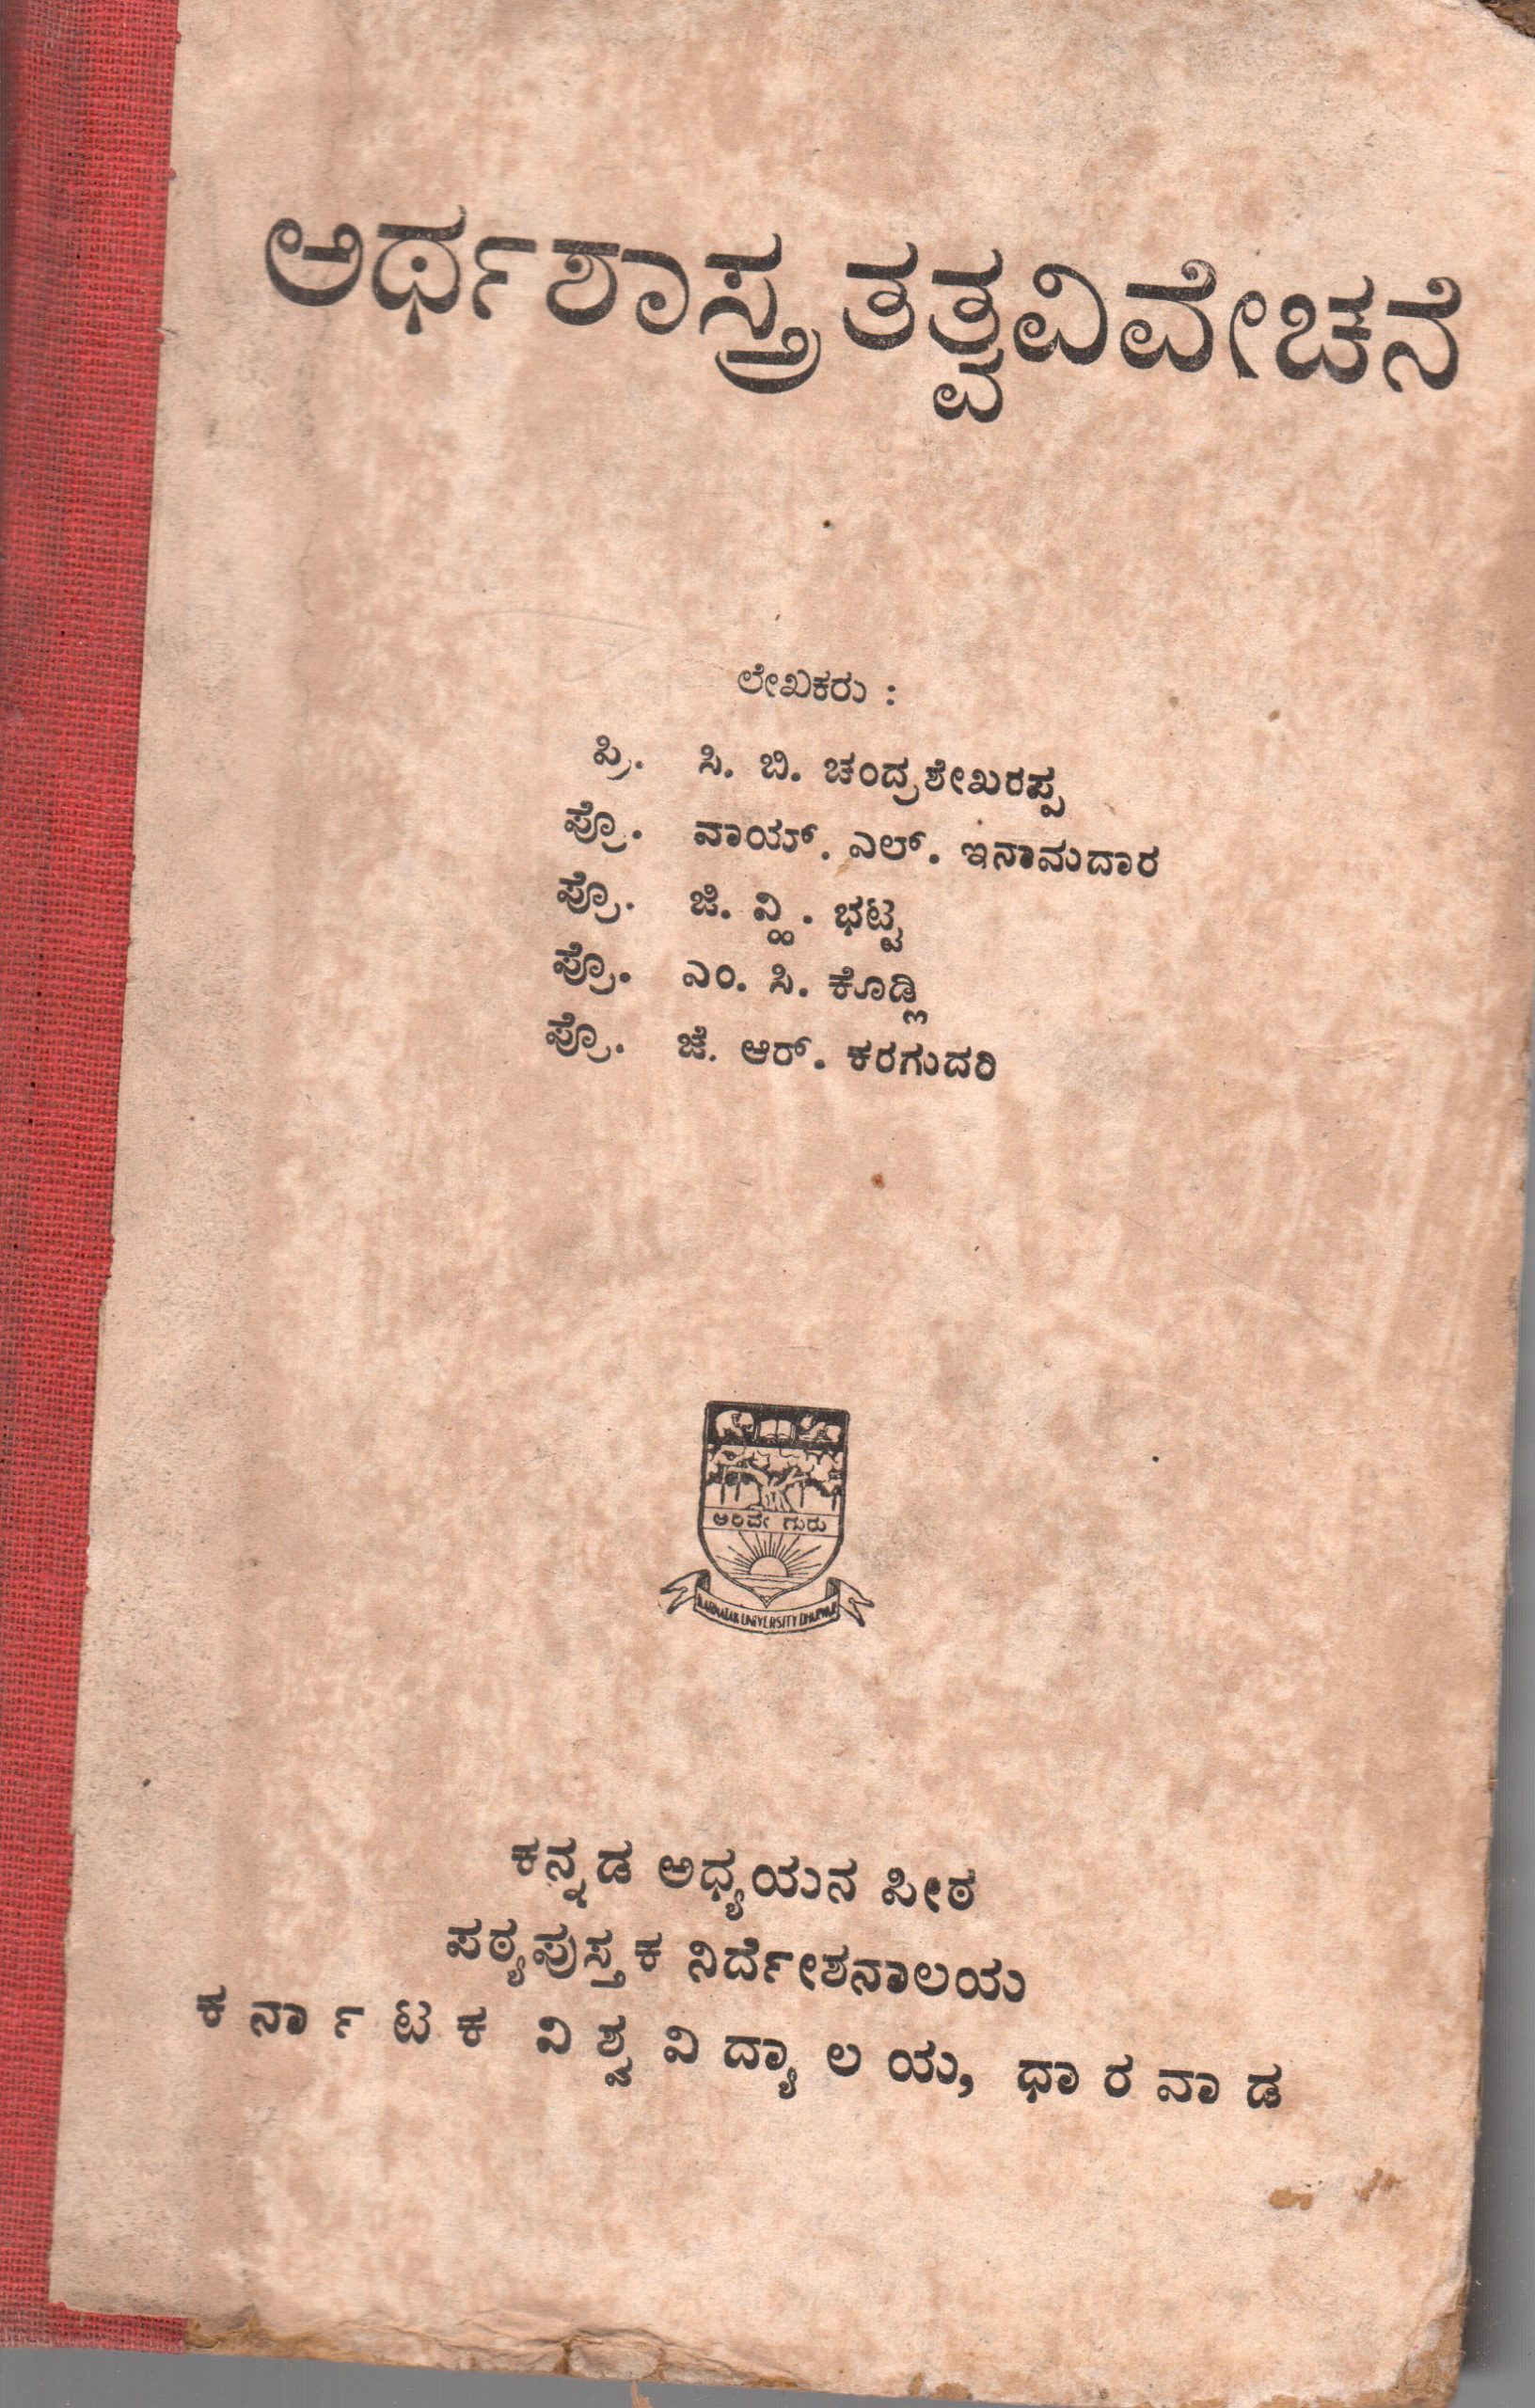 ಅರ್ಥಶಾಸ್ತ್ರ ತತ್ತ್ವವಿವೇಚನೆ
ಲೇಖಕರು :
ಪ್ರಿ. ಸಿ. ಬಿ. ಚಂದ್ರಶೇಖರಪ್ಪ
ಪ್ರೊ. ವಾಯ್. ಎಲ್. ಇನಾಮದಾರ
ಪ್ರೊ. ಜಿ. ವ್ಹಿ. ಭಟ್ಟ
ಪ್ರೊ. ಎಂ. ಸಿ. ಕೊಡ್ಲಿ
ಪ್ರೊ. ಜೆ. ಆರ್. ಕರಗುದರಿ
ಅರಿವೇ ಗುರು
KARNATAK UNIVERSITY DHARWAR
ಕನ್ನಡ ಅಧ್ಯಯನ ಪೀಠ
ಪಠ್ಯಪುಸ್ತಕ ನಿರ್ದೇಶನಾಲಯ
ಕರ್ನಾಟಕ ವಿಶ್ವವಿದ್ಯಾಲಯ, ಧಾರವಾಡ